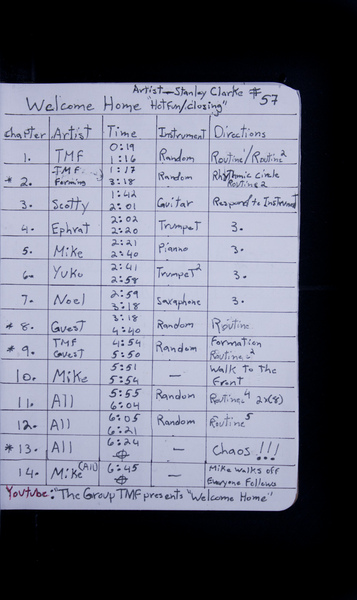 Artist—Stanley Clarke #57
Welcome Home "Hot Fun/closing"
Chapter Artist Time Instrument Directions
1. TMF 0:19 1:16 Random Routine'/Routine²
* 2. TMF Forming 1:17 3:18 Random Rhythmic circle Routine 2
3. Scotty 1:42 2:01 Guitar Respond to Instrument
4. Ephrat 2:02 2:20 Trumpet 3.
5. Mike 2:21 2:40 Pianno 3.
6. Yuko 2:41 2:58 Trumpet² 3.
7. Noel 2:59 3:18 Saxaphone 3.
* 8. Guest 3:18 4:40 Random Routine
* 9. TMF Guest 4:54 5:50 Random Formation Routine²
10. Mike 5:51 5:54 — Walk to the Front
11. All 5:55 6:04 Random Routine⁴ 2x(8)
12. All 6:05 6:21 Random Routine⁵
* 13. All 6:24 — Chaos!!!
14. Mike (All) 6:45 — Mike walks off Everyone Follows
Youtube: "The Group TMF presents "Welcome Home"